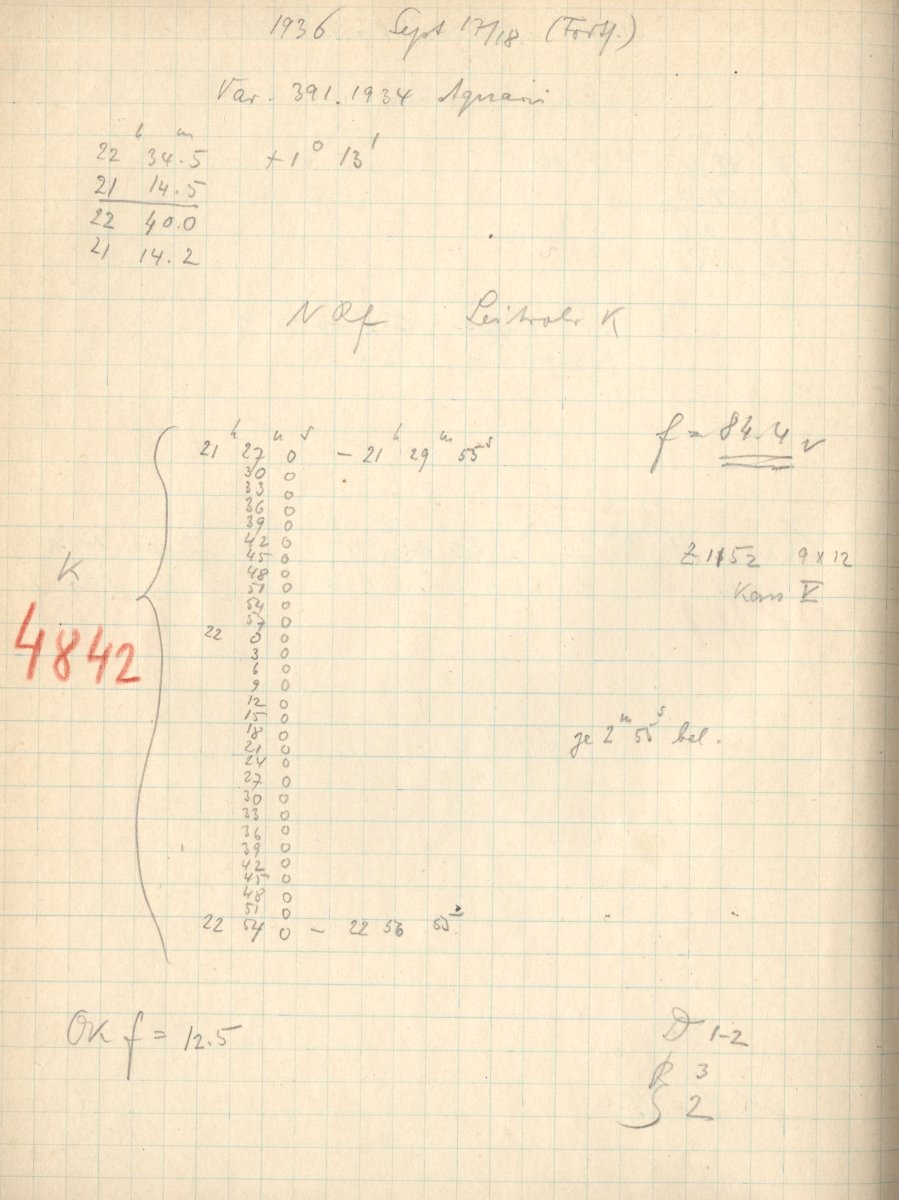 1936 Sept 17/18 (Forts.)
Var. 391.1934 Aquarii
22 h 34 m .5 +1° 13'
21 14.5
22 40.0
21 14.2
Leitrohr K
21 h 27 m 0 s – 21 h 29 m 55 s
f = 84.4
30 0
33 0
36 0
39 0
42 0
45 0
Z 1152 9x12
48 0
K
51 0
Kass V
54 0
57 0
22 0 0
4842
3 0
6 0
9 0
12 0
15 0
18 0
je 2 m 55 s bel.
21 0
24 0
27 0
30 0
33 0
36 0
39 0
42 0
45 0
48 0
51 0
22 54 0 – 22 56 55
OK f = 12.5
D 1-2
R 3
S 2